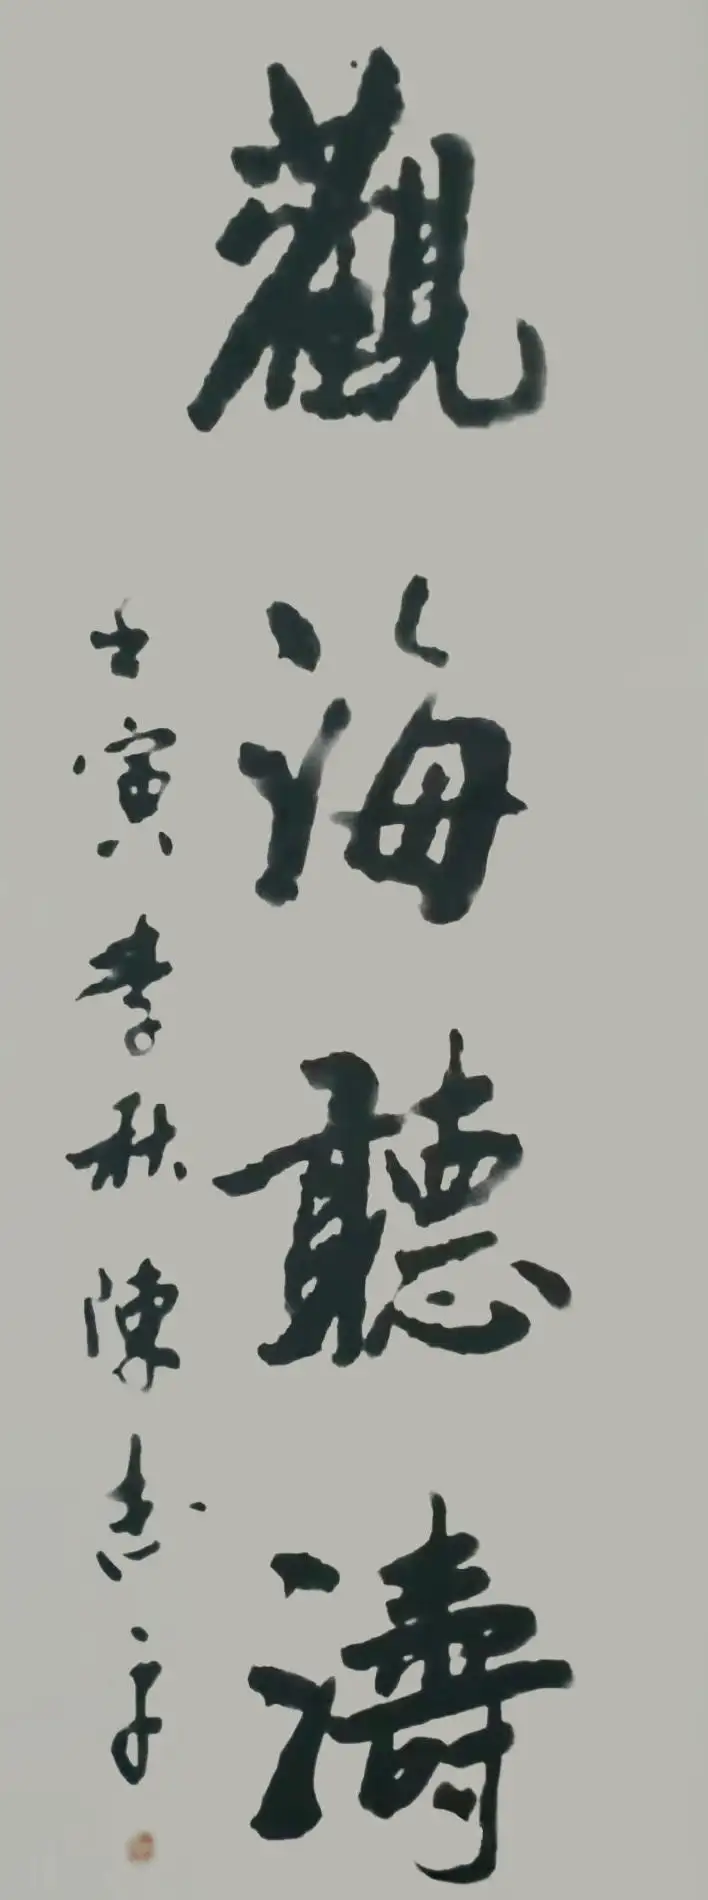 觀海聽濤
壬寅季秋陳志平